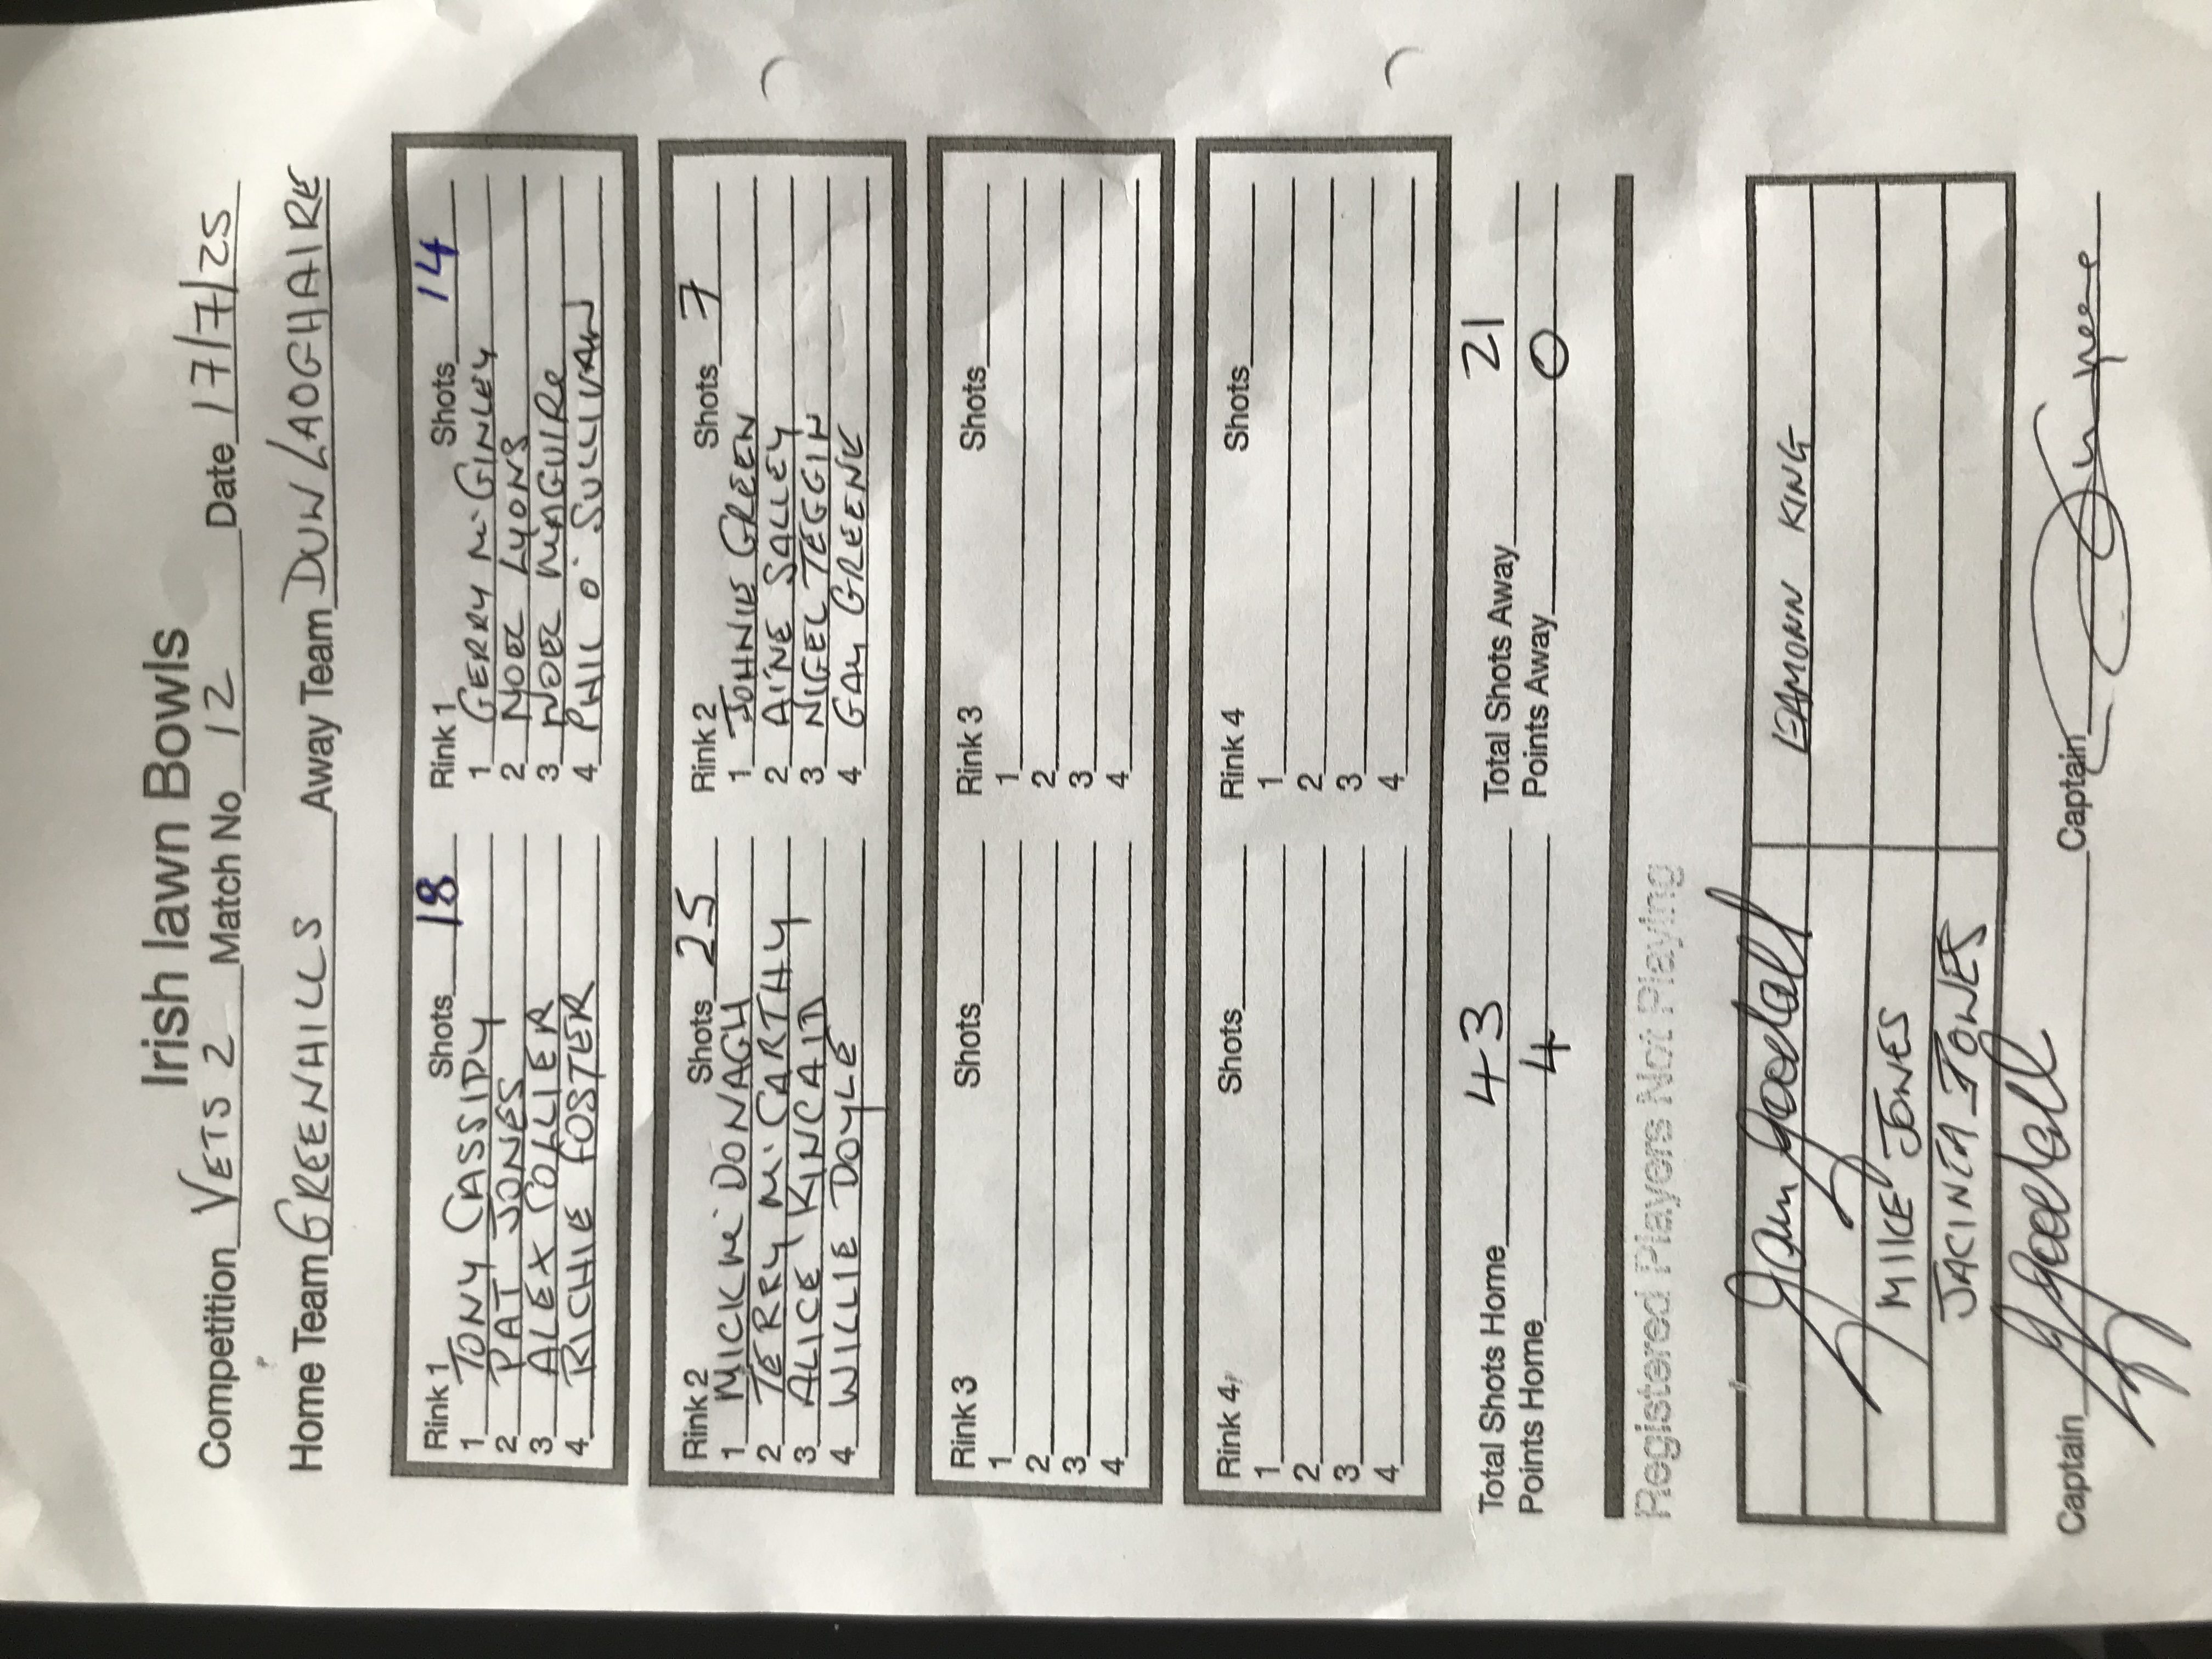 Irish lawn Bowls
Competition VETS 2 Match No 12 Date 17/7/25
Home Team GREENHILLS Away Team DUN LAOGHAIRE
Rink 1 Shots 18 Rink 1 Shots 14
1 TONY CASSIDY 1 GERRY Mc GINLEY
2 PAT JONES 2 NOEL LYONS
3 ALEX COLLIER 3 NOEL MAGUIRE
4 RICHIE FOSTER 4 PHIL O' SULLIVAN
Rink 2 Shots 25 Rink 2 Shots 7
1 MICK Mc DONAGH 1 JOHNNIE GREEN
2 TERRY Mc CARTHY 2 AINE SALLEY
3 ALICE KINCAID 3 NIGEL TEGGIN
4 WILLIE DOYLE 4 GAY GREENE
Rink 3 Shots Rink 3 Shots
1 1
2 2
3 3
4 4
Rink 4 Shots Rink 4 Shots
1 1
2 2
3 3
4 4
Total Shots Home 43 Total Shots Away 21
Points Home 4 Points Away 0
Registered Players Not Playing
Goodall EAMONN KING
MIKE JONES
JACINTA JONES
Captain Goodall Captain